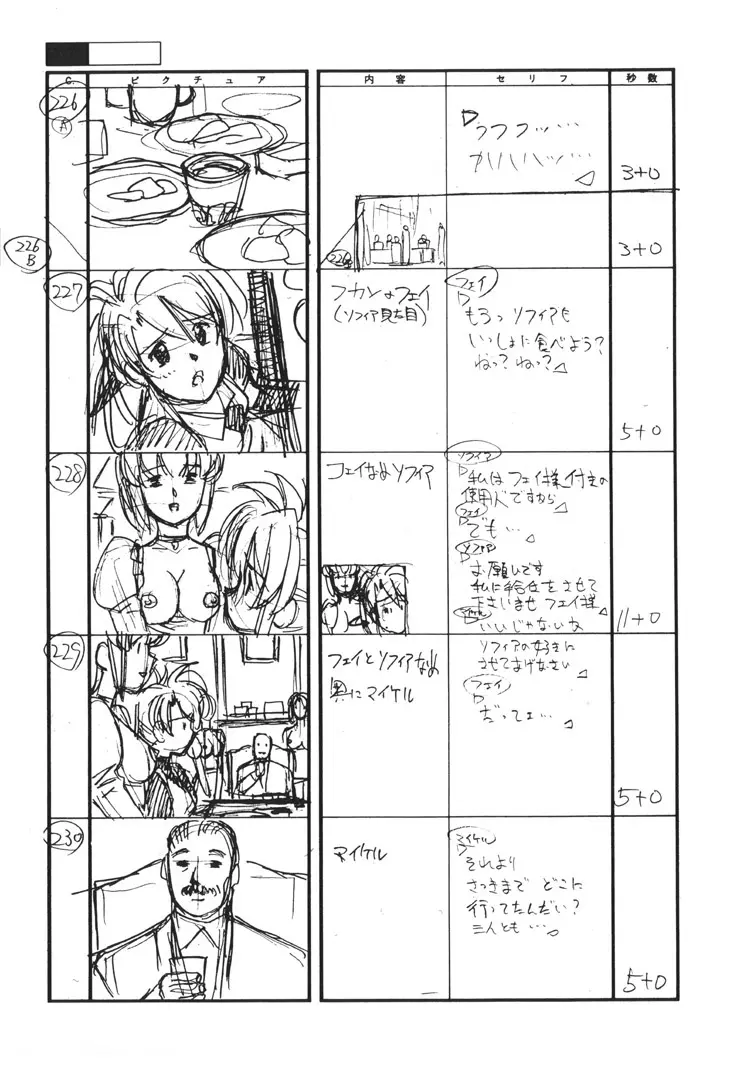 C. ピクチュア 内容 セリフ 秒数
226
A
うフフッ…
ハハハハッ…
3+0
226
B
3+0
227
フカンのフェイ
(ソフィア見た目)
フェイ
もろっソフィアも
いっしょに食べよう?
ねっ?ねっ?
5+0
228
フェイなめソフィア
ソフィア
私はフェイ様付きの
使用人ですから
フェイ
でも…
ソフィア
お願いです
私に給仕をさせて
下さいませ フェイ様
いいじゃないか
11+0
229
フェイとソフィアなめ
奥にマイケル
ソフィアの好きに
させてあげなさい
フェイ
だってェ…
5+0
230
マイケル
マイケル
それより
さっきまで どこに
行ってたんだい?
三人とも…
5+0